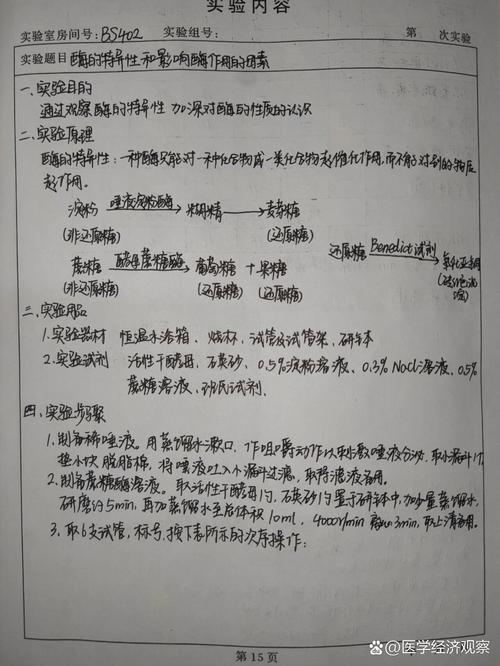 实验内容
实验室房间号: BS402 实验组号: 第 次实验
实验题目 酶的特异性和影响酶作用的因素
一、实验目的
通过观察酶的特异性 加深对酶的性质的认识
二、实验原理
酶的特异性:一种酶只能对一种化合物或一类化合物起催化作用,而不能对别的物质
起作用。
淀粉 唾液淀粉酶→ 糊精 → 麦芽糖
(非还原糖) (还原糖)
还原糖 Benedict试剂→ 氧化亚铜
蔗糖 酵母蔗糖酶→ 葡萄糖 + 果糖
(非还原糖) (还原糖) (还原糖)
三、实验用品
1.实验器材 恒温水浴箱、烧杯、试管及试管架、研钵
2.实验试剂 活性干酵母、石英砂、0.5%淀粉溶液、0.3% NaCl溶液、0.5%
蔗糖溶液、班氏试剂.
四、实验步骤
1.制备稀唾液。用蒸馏水漱口,作咀嚼动作以 唾液分泌,取小漏斗1个,
垫小块脱脂棉,将唾液吐入小漏斗过滤,取 滤液备用。
2.制备蔗糖酶溶液。取活性干酵母1g,石英砂1g置于研钵中,加少量蒸馏水,
研磨约5min,再加蒸馏水至总体积10ml,4000r/min离心3min,取上清备用。
3、取6支试管,标号,按下表所示的次序操作:
第15页
医学经济观察